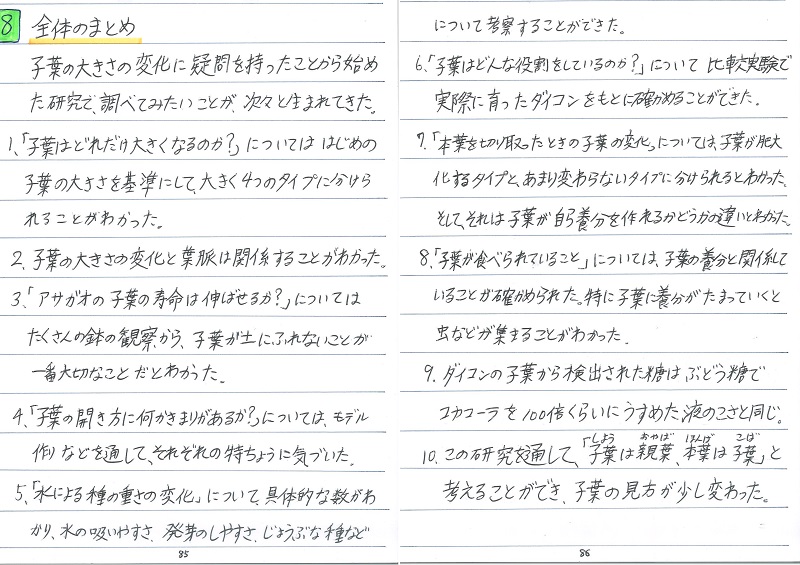 8 全体のまとめ
子葉の大きさの変化に疑問を持ったことから始め
た研究で、調べてみたいことが、次々と生まれてきた。
1、「子葉はどれだけ大きくなるのか?」についてははじめの
子葉の大きさを基準にして、大きく4つのタイプに分けら
れることがわかった。
2、子葉の大きさの変化と葉脈は関係することがわかった。
3、「アサガオの子葉の寿命は伸ばせるか?」については
たくさんの鉢の観察から、子葉が土にふれないことが
一番大切なことだとわかった。
4、「子葉の開き方に何かきまりがあるか?」については、モデル
作りなどを通して、それぞれの特ちょうに気づいた。
5、「水による種の重さの変化」について、具体的な数がわ
かり、水の吸いやすさ、発芽のしやすさ、じょうぶな種など
85
について考察することができた。
6、「子葉はどんな役割をしているのか?」について比較実験で
実際に育ったダイコンをもとに確かめることができた。
7、「本葉を切り取ったときの子葉の変化」については、子葉が肥大
化するタイプと、あまり変わらないタイプに分けられるとわかった。
そして、それは子葉が自ら養分を作れるかどうかの違いとわかった。
8、「子葉が食べられていること」については、子葉の養分と関係して
いることが確かめられた。特に子葉に養分がたまっていくと
虫などが集まることがわかった。
9、ダイコンの子葉から検出された糖はぶどう糖で
コカコーラを100倍くらいにうすめた液のこさと同じ。
しよう おやば ほんば こば
10、この研究を通して、「子葉は親葉、本葉は子葉」と
考えることができ、子葉の見方が少し変わった。
86